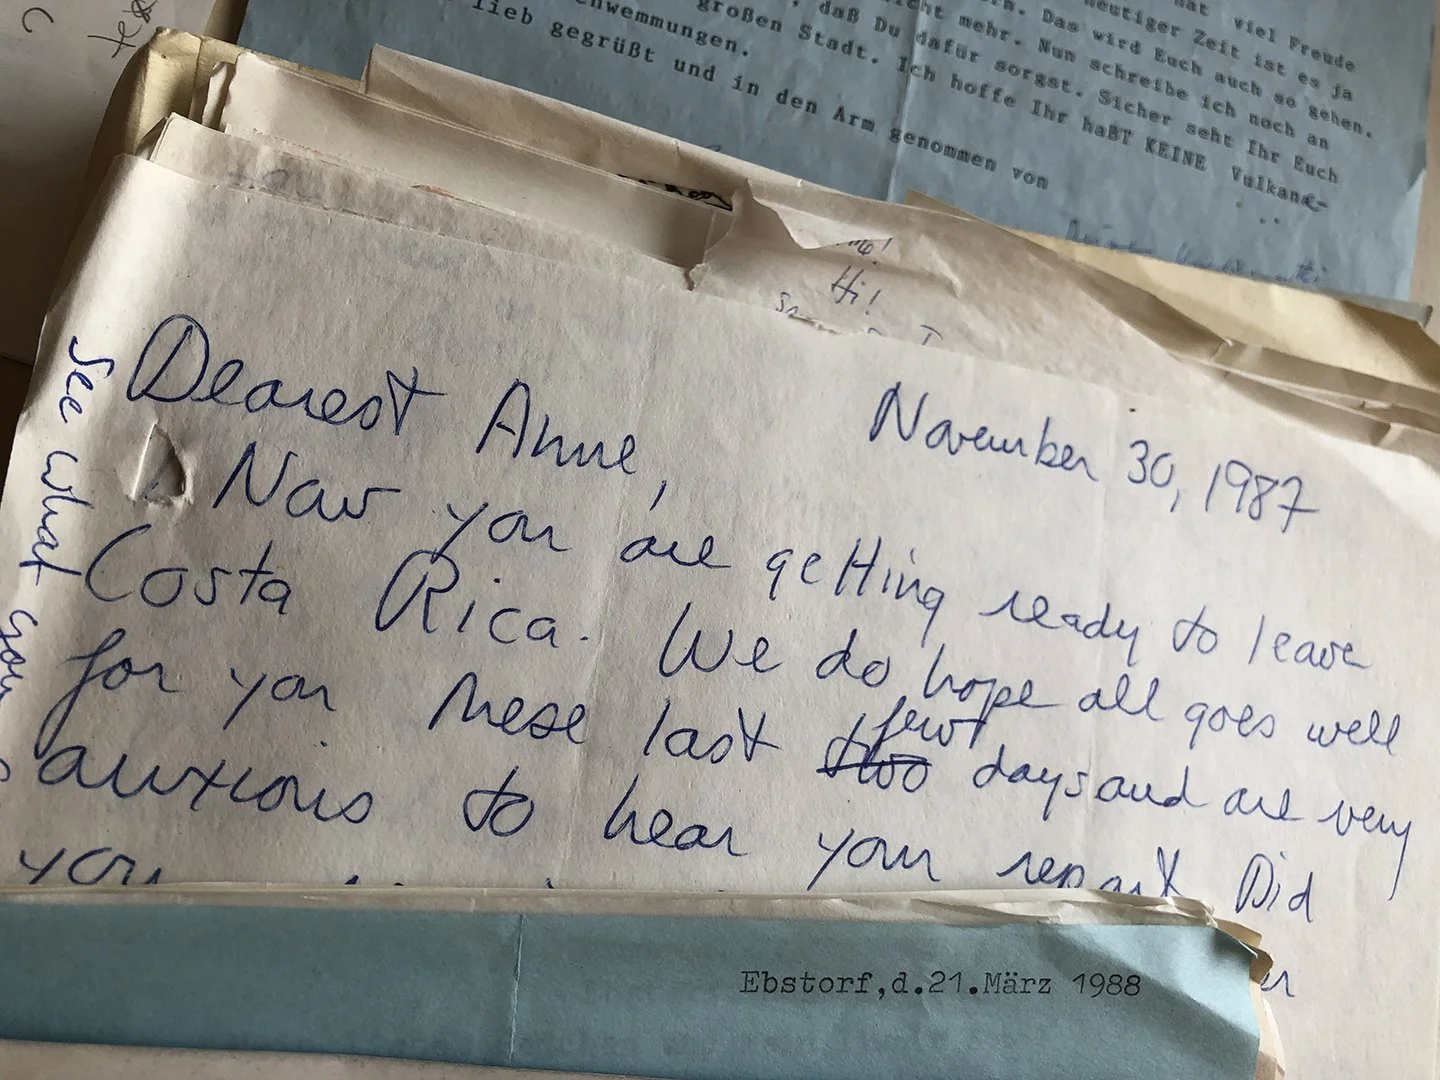 hat viel Freude
heutiger Zeit ist es ja
Das wird Euch auch so gehen.
nicht mehr. Nun schreibe ich noch an
daß Du dafür sorgst. Sicher seht Ihr Euch
großen Stadt. Ich hoffe Ihr haßT KEINE Vulkane-
chwemmungen.
lieb gegrüßt und in den Arm genommen von
Hi!
Dearest Anne,
November 30, 1987
Now you are getting ready to leave
Costa Rica. We do hope all goes well
for you these last two few days and are very
anxious to hear your report. Did
you
See what you
Ebstorf,d.21.März 1988